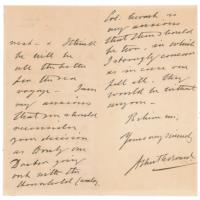 rest - & I think
he will be
all the better
for the sea
voyage - I am
very anxious
that you should
reconsider
your decision
as to only one
Doctor going
out with the
Household Cavalry.
Col. is
very anxious
that there should
be two, in which
I strongly concur
as in case one
fell ill, they
would be without
anyone.
Believe me,
Yours very sincerely